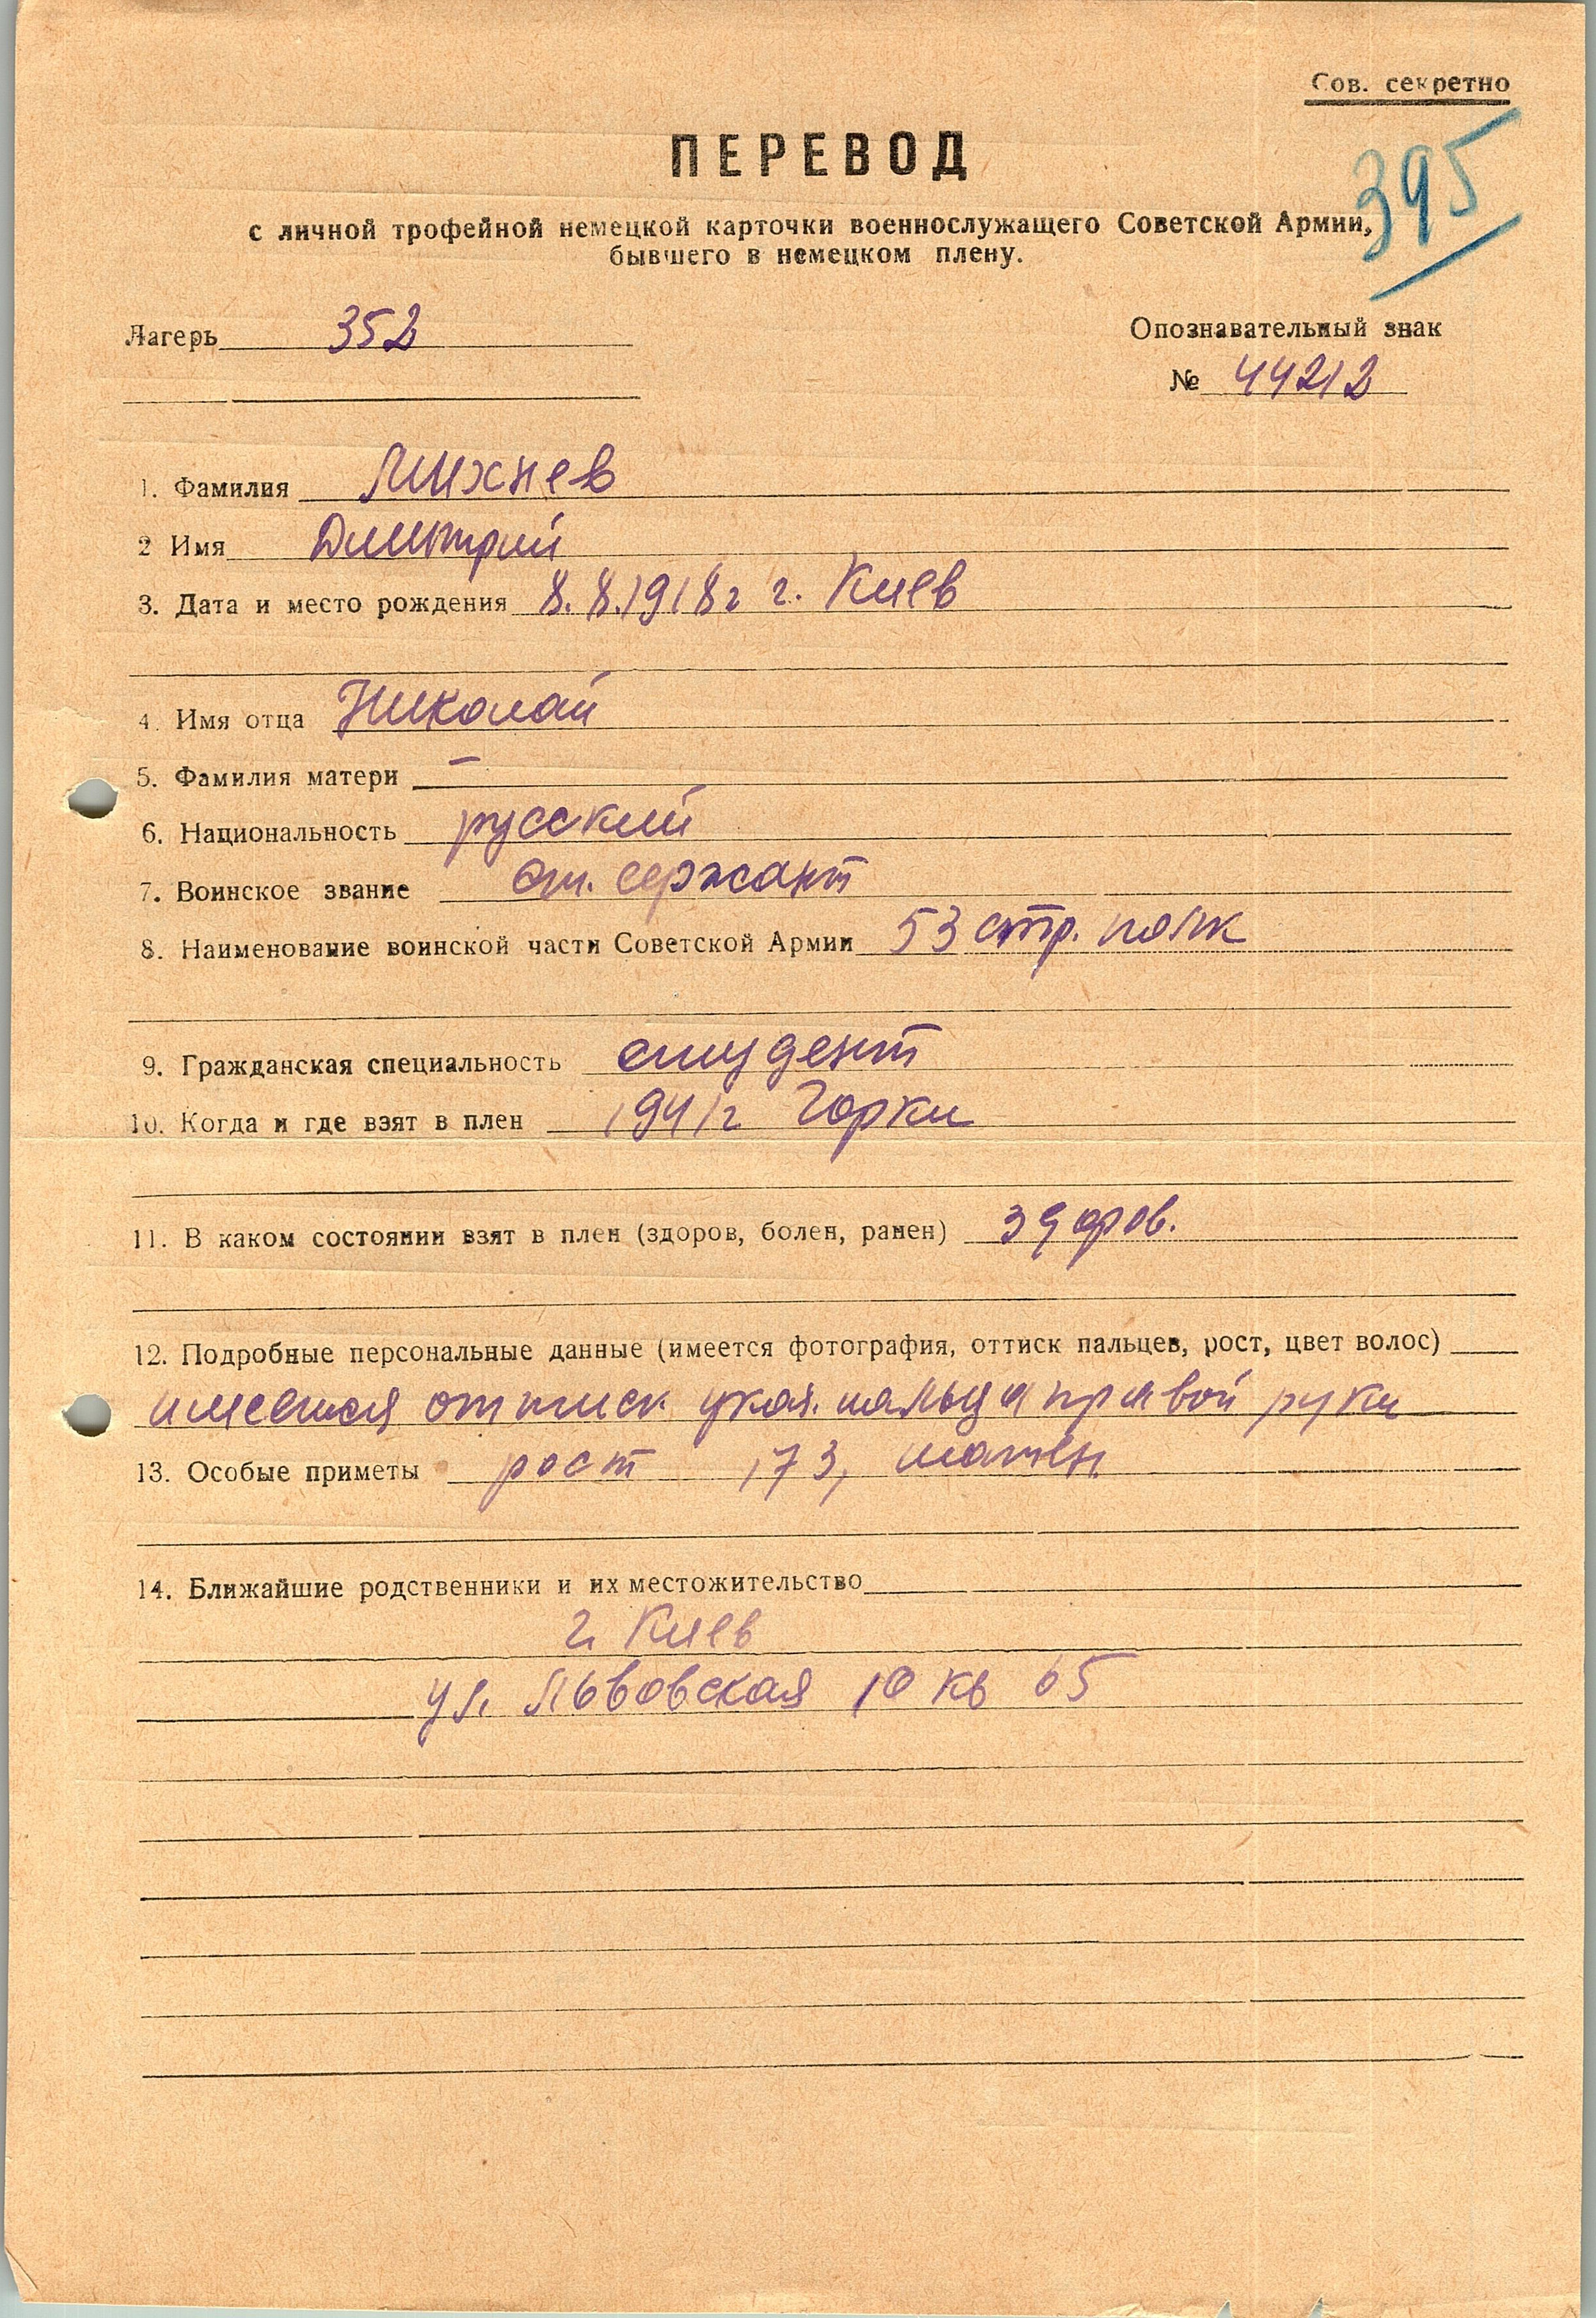 Сов. секретно
395
ПЕРЕВОД
с личной трофейной немецкой карточки военнослужащего Советской Армии,
бывшего в немецком плену.
Лагерь 352
Опознавательный знак
№ 44212
1. Фамилия Михнев
2 Имя Дмитрий
3. Дата и место рождения 8.8.1918г г. Киев
4. Имя отца Николай
5. Фамилия матери –
6. Национальность русский
7. Воинское звание ст. сержант
8. Наименование воинской части Советской Армии 53 стр. полк
9. Гражданская специальность студент
10. Когда и где взят в плен 1941г Горки
11. В каком состоянии взят в плен (здоров, болен, ранен) здоров.
12. Подробные персональные данные (имеется фотография, оттиск пальцев, рост, цвет волос)
имеется оттиск указ. пальца правой руки
13. Особые приметы рост 173, шатен
14. Ближайшие родственники и их местожительство
г. Киев
ул. Львовская 10 кв 65